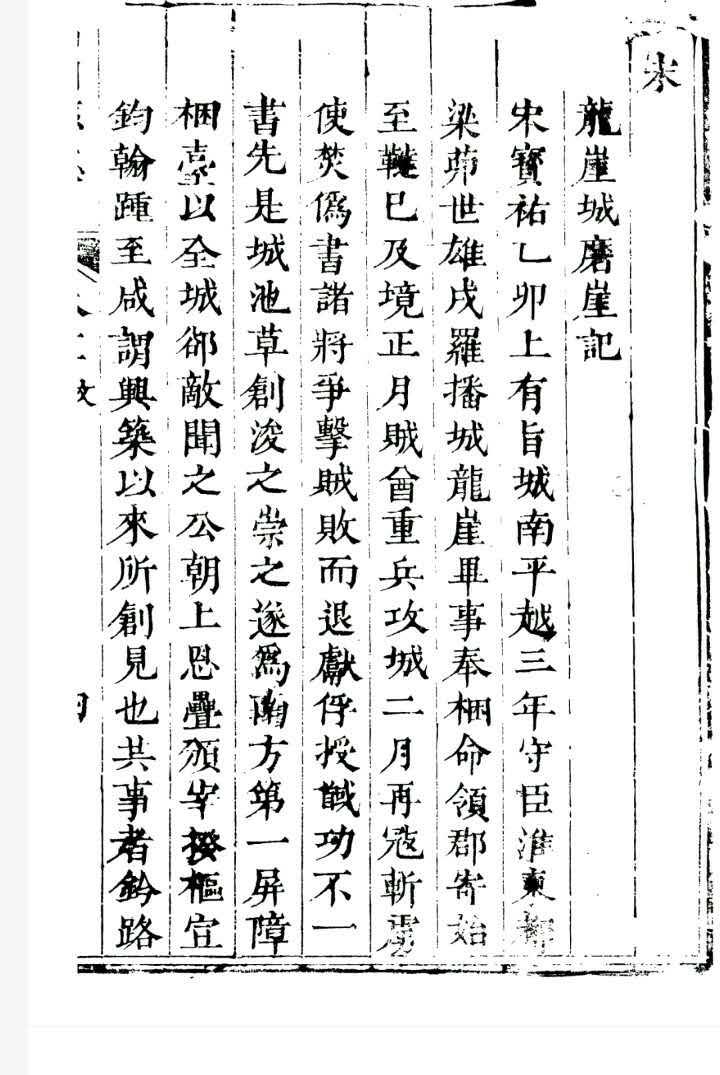 宋
龍崖城磨崖記
宋寳祐乙卯上有旨城南平越三年守臣淮東都
梁茆世雄戌羅播城龍崖畢事奉梱命領郡寄始
至韃已及境正月賊酋重兵攻城二月再寇斬虜
使焚僞書諸將爭擊賊敗而退獻俘授馘功不一
書先是城池草創浚之崇之遂爲南方第一屏障
梱臺以全城郤敵聞之公朝上恩疊頒宰揆樞宜
鈞翰踵至咸謂興築以來所創見也共事者鈐路